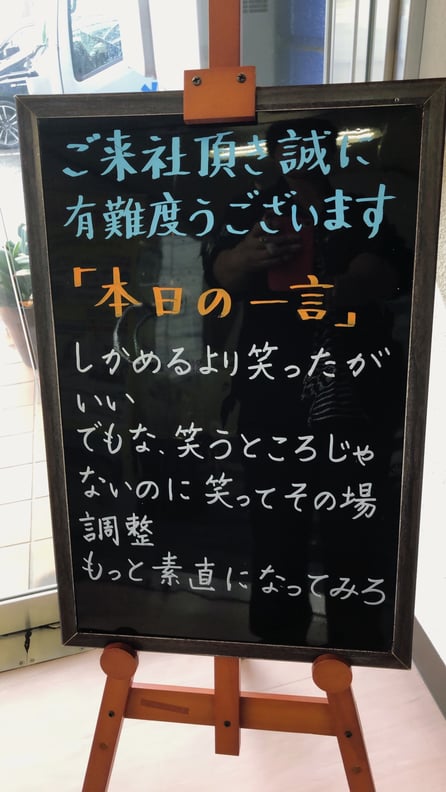 ご来社頂き誠に
有難度うございます
「本日の一言」
しかめるより笑ったが
いい
でもな、笑うところじゃ
ないのに笑ってその場
調整
もっと素直になってみろ